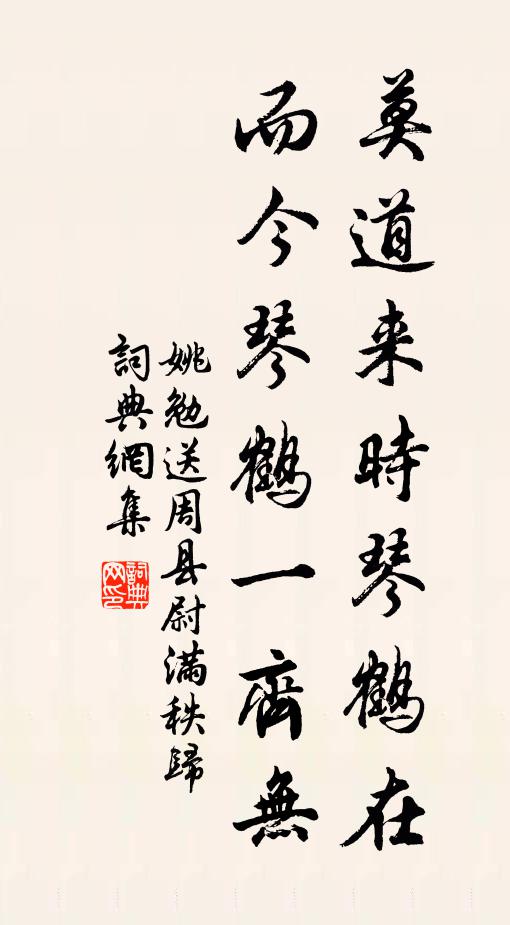 莫道来時琴鶴在
而今琴鶴一齊無
姚勉送周县尉满秩歸
詞典網集
詞典网印